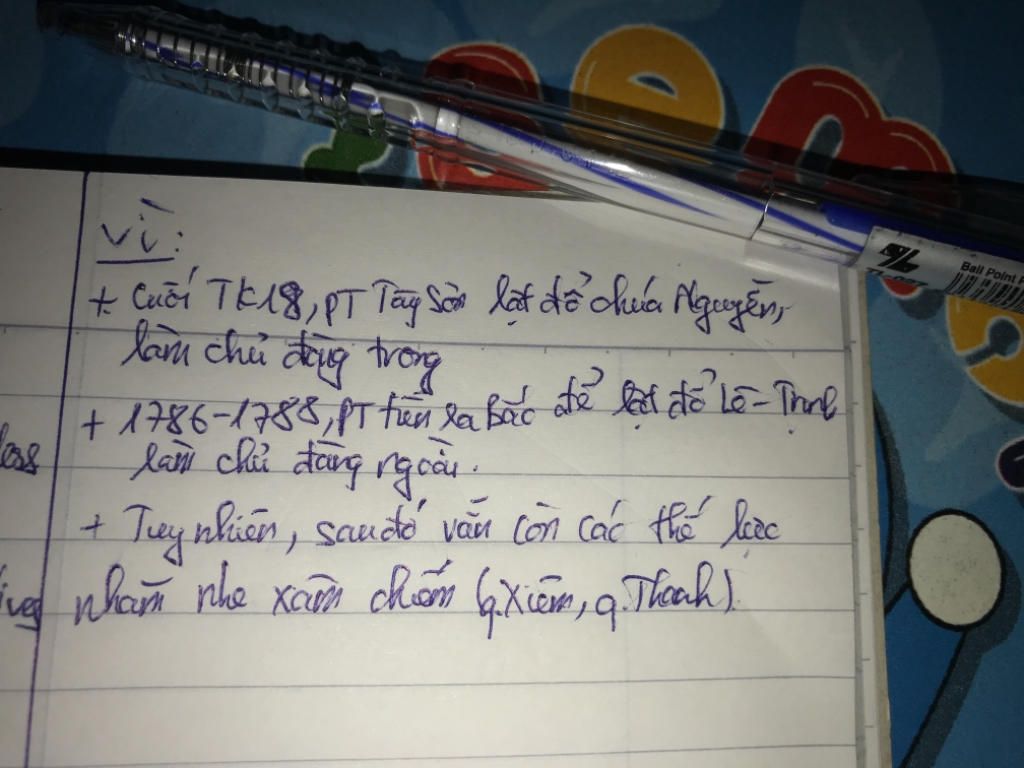 Vì:
+ Cuối TK18, PT Tây Sơn lật đổ chúa Nguyễn,
làm chủ đàng trong
+ 1786-1788, PT tiến ra Bắc để lật đổ Lê-Trịnh
làm chủ đàng ngoài.
+ Tuy nhiên, sau đó vẫn còn các thế lực
nhăm nhe xâm chiếm (q.Xiêm, q.Thanh).
less
Ball Point